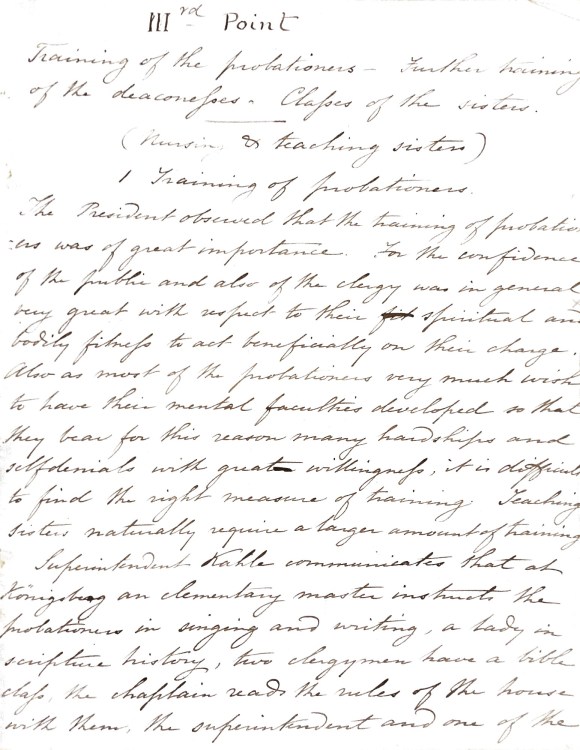 IIIrd Point
Training of the probationers – Further training
of the deaconesses. Classes of the sisters.
(Nursing & teaching sisters)
1 Training of probationers.
The President observed that the training of probation-
ers was of great importance. For the confidence
of the public and also of the clergy was in general
very great with respect to their fit spiritual and
bodily fitness to act beneficially on their charge.
Also as most of the probationers very much wish
to have their mental faculties developed so that
they bear for this reason many hardships and
selfdenials with great willingness, it is difficult
to find the right measure of training. Teaching
sisters naturally require a larger amount of training
Superintendent Kahle communicates that at
Königsberg an elementary master instructs the
probationers in singing and writing, a lady in
scripture history, two clergymen have a bible
class, the chaplain reads the rules of the house
with them, the superintendent and one of the